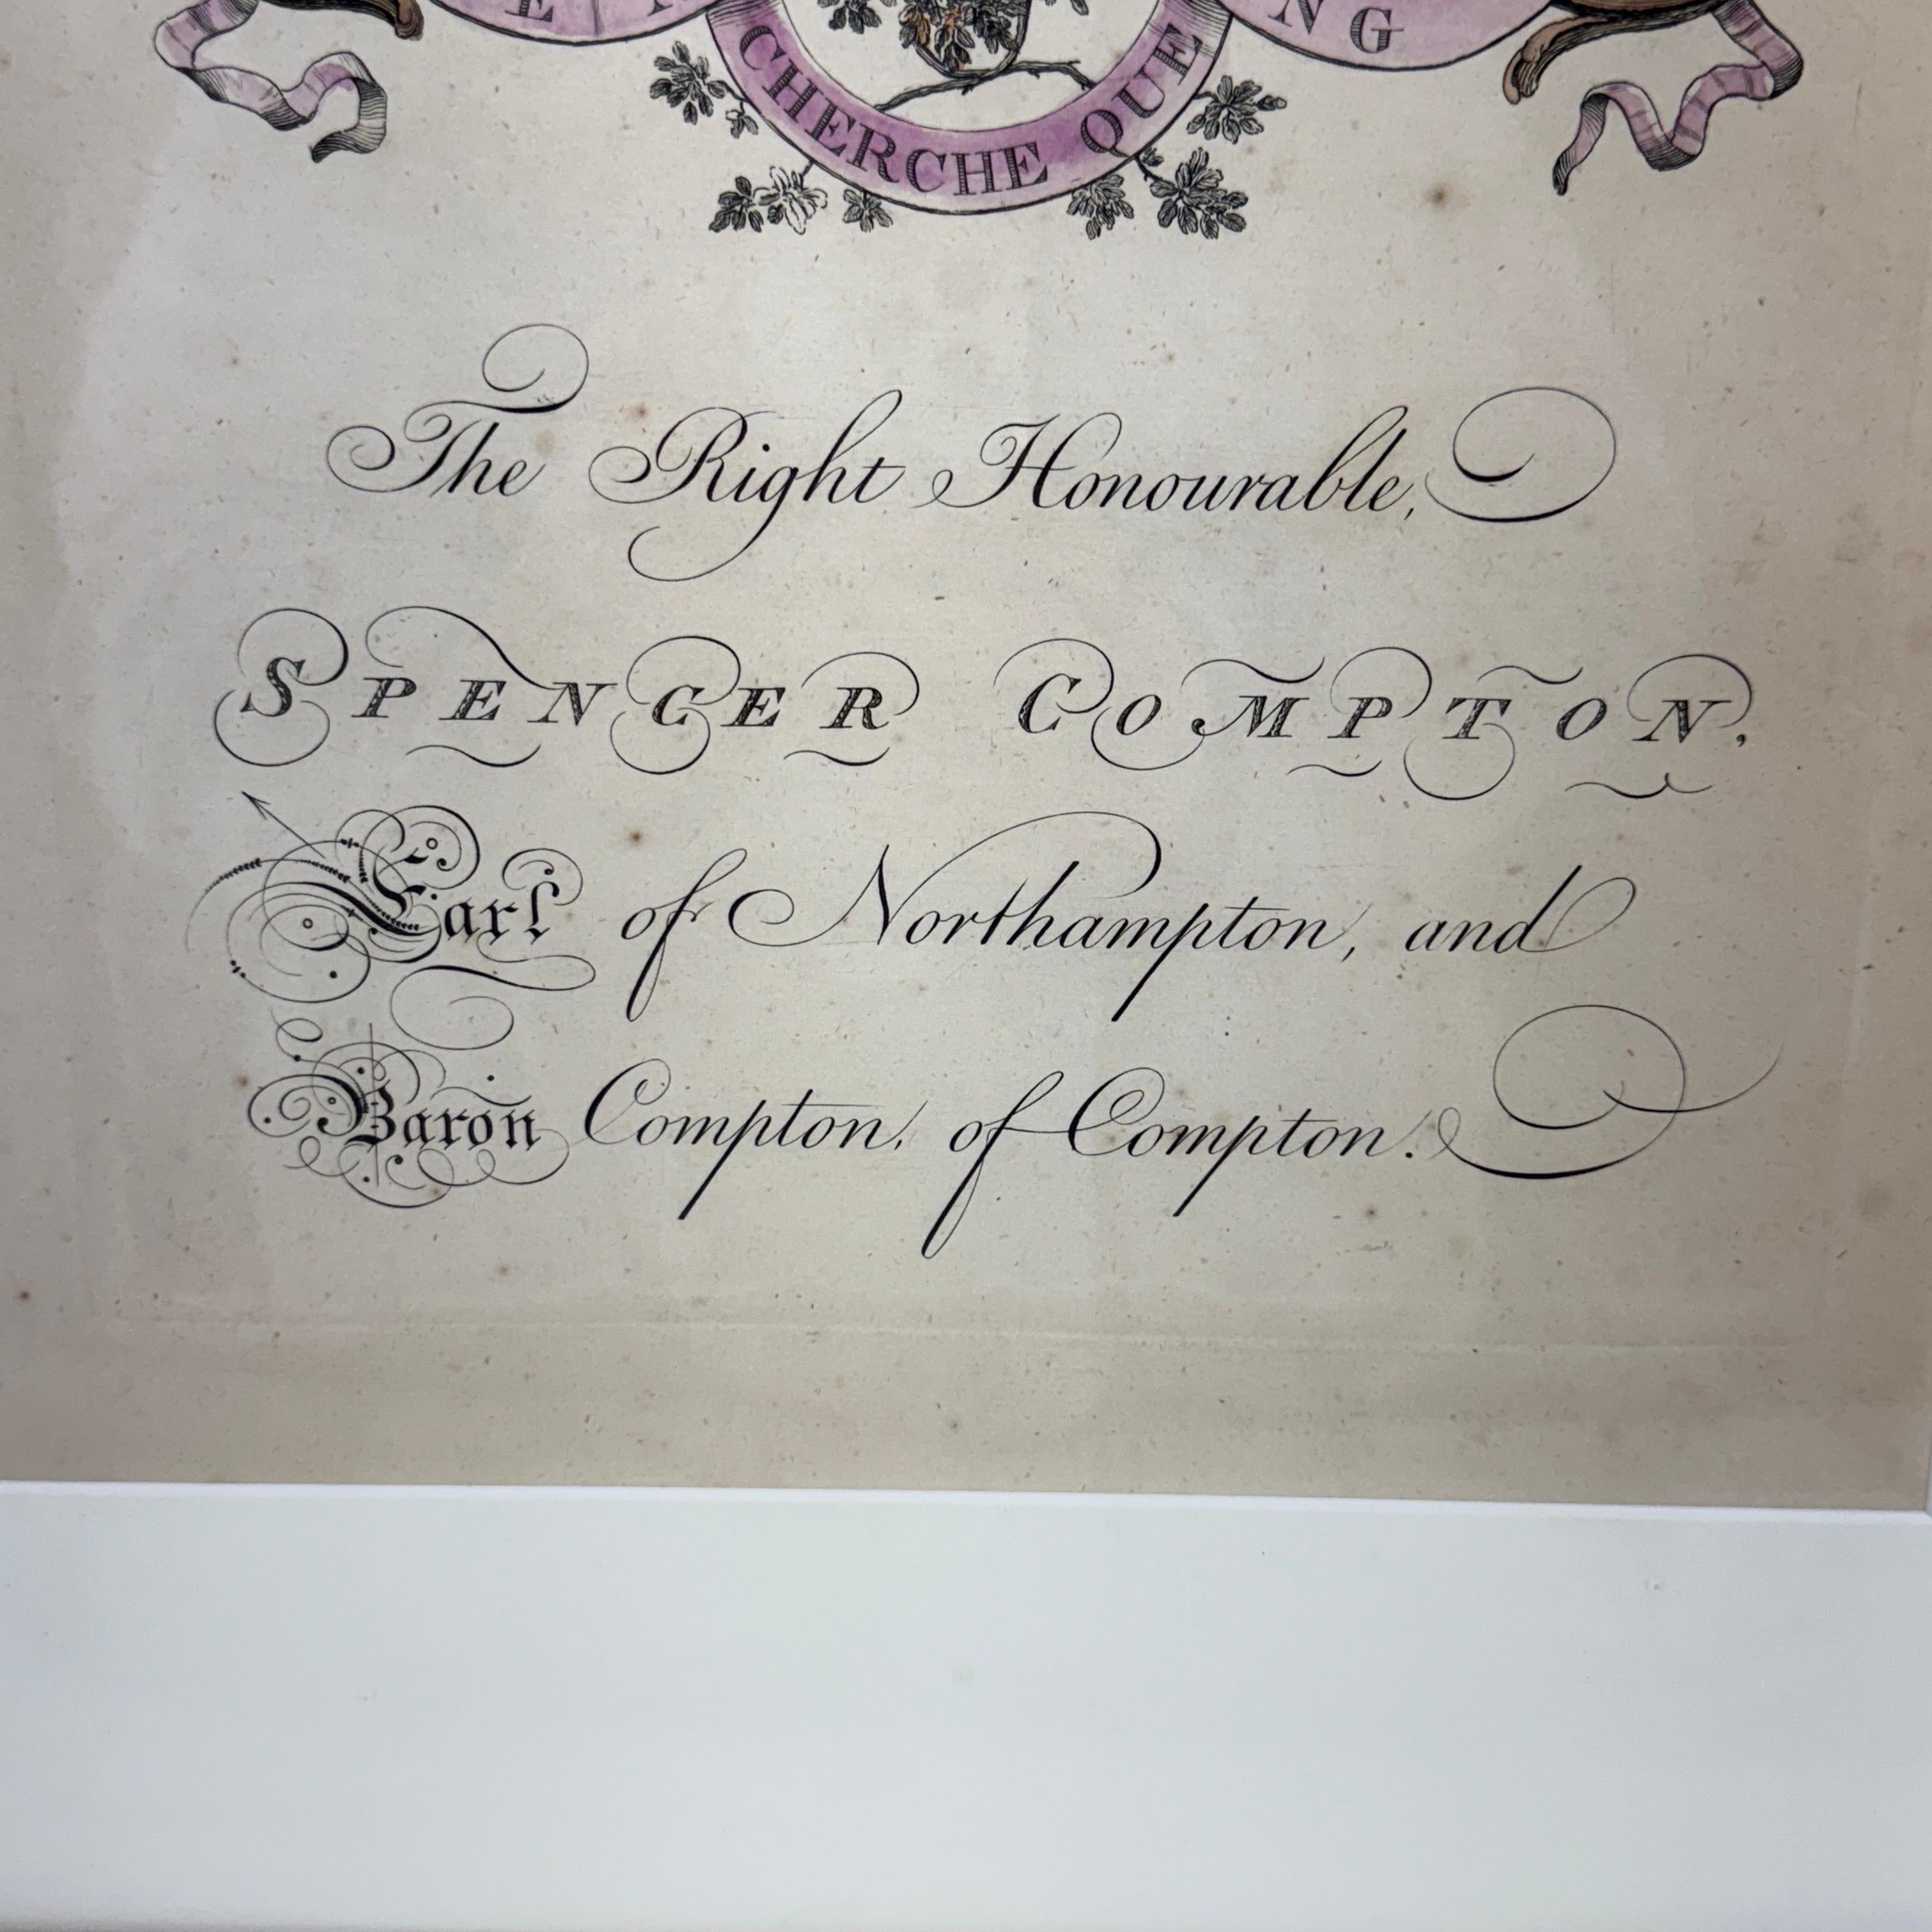 CHERCHE QUE
NG
The Right Honourable,
SPENCER COMPTON,
Earl of Northampton, and
Baron Compton, of Compton.